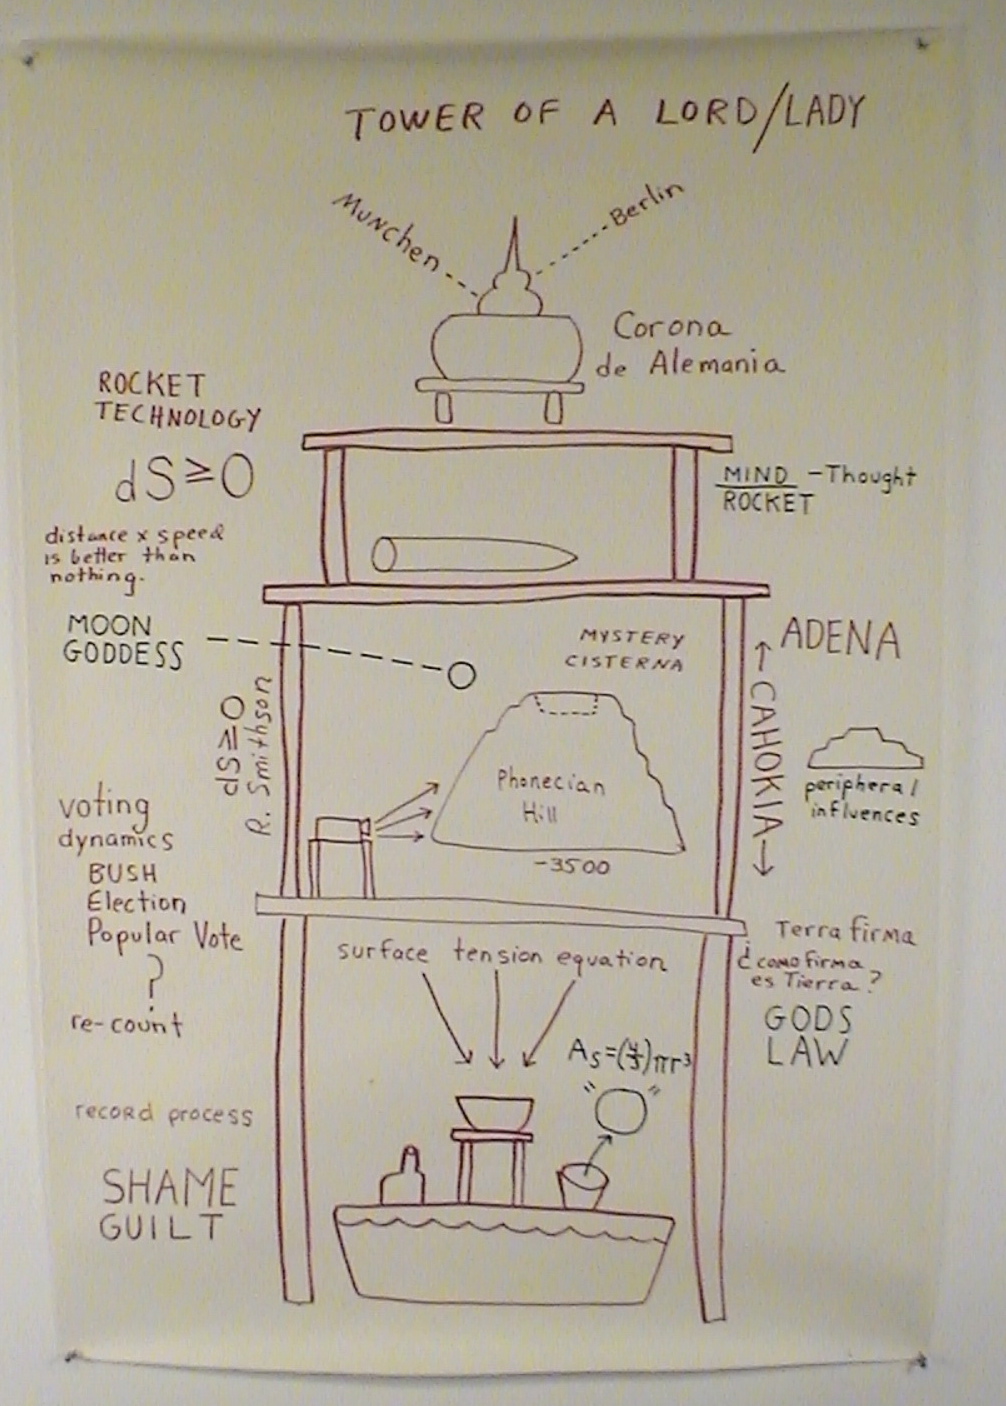 TOWER OF A LORD/LADY
Munchen
Berlin
Corona
de Alemania
ROCKET
TECHNOLOGY
dS≥O
distance x speed
is better than
nothing.
MIND - Thought
ROCKET
MOON
GODDESS
MYSTERY
CISTERNA
ADENA
CAHOKIA
dS≥O
R. Smithson
Phonecian
Hill
-3500
peripheral
influences
voting
dynamics
BUSH
Election
Popular Vote
?
re-count
surface tension equation
Terra firma
¿como firma
es Tierra?
GODS
LAW
As=(4/3)πr³
" "
record process
SHAME
GUILT